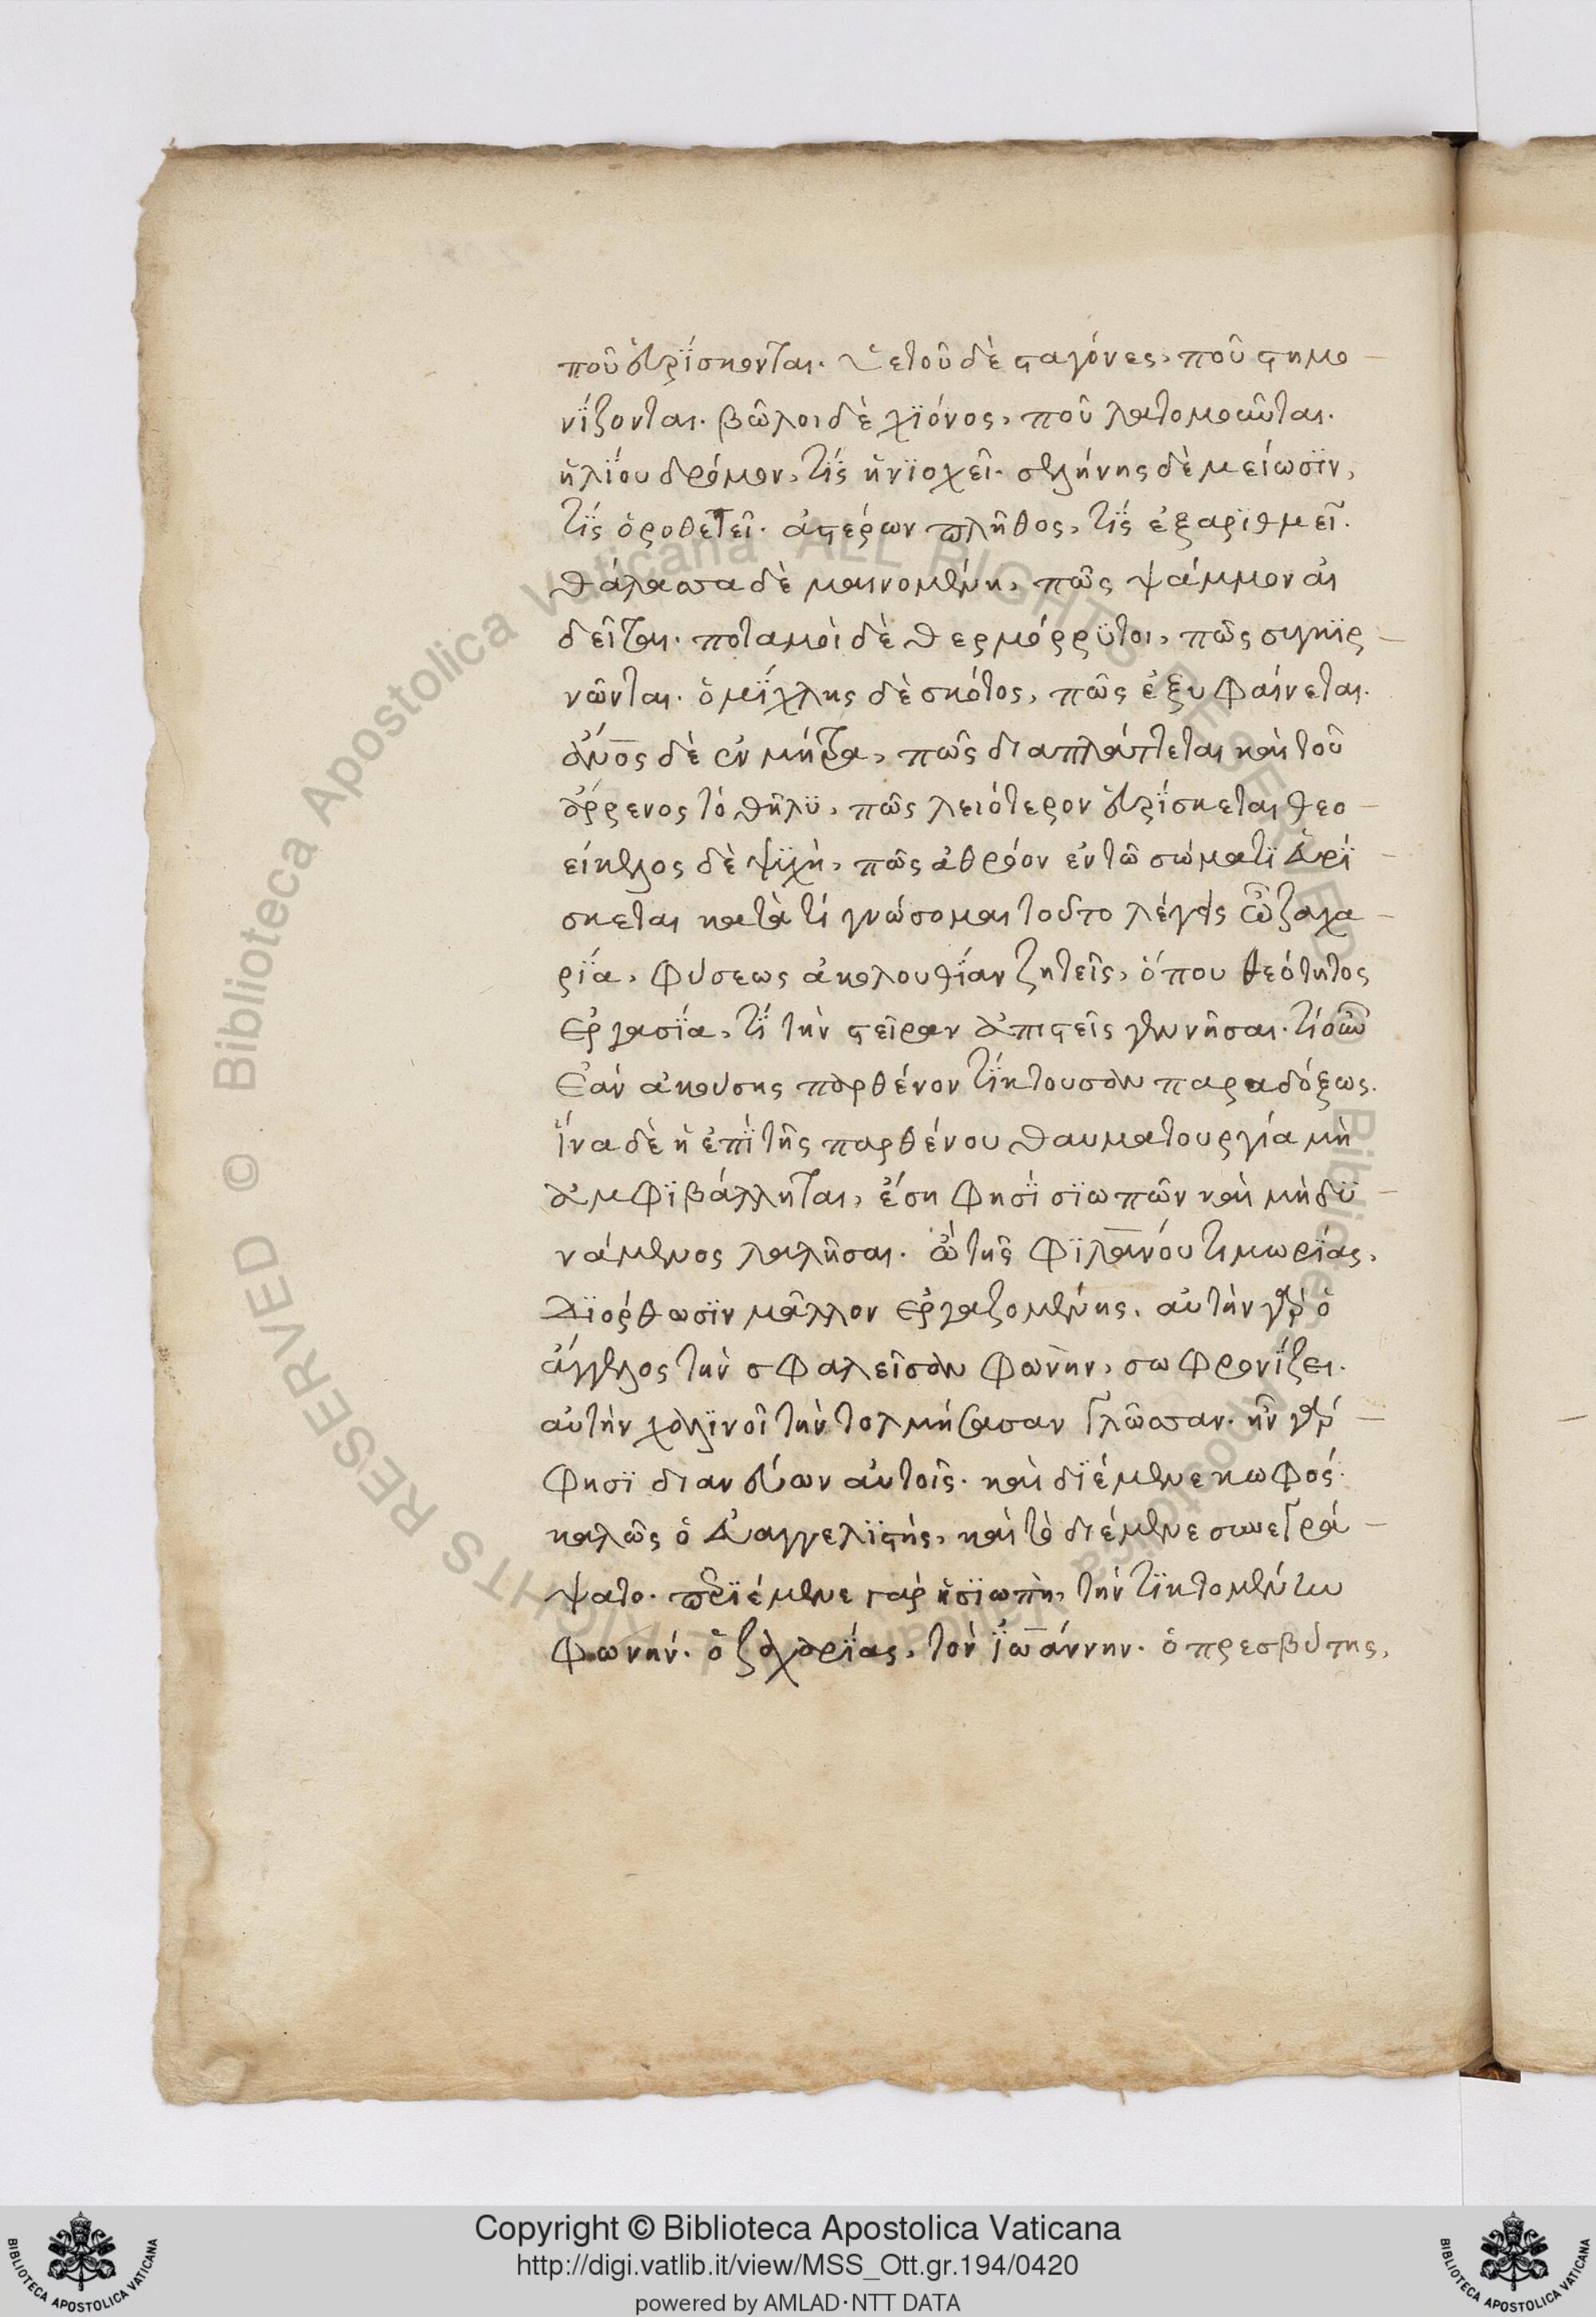 ποῦ εὑρΐσκονται. ὑετοῦ δὲ ϛαγόνες, ποῦ ϛημο
νΐζονται. βῶλοι δὲ χϊόνος, ποῦ λατομοῦνται.
ἡλΐου δρόμον, τΐς ἡνϊοχεῖ. σελήνης δὲ μείωσϊν,
τΐς ὁροθετεῖ. ἀϛέρων πλῆθος, τΐς ἐξαρϊθμεῖ.
θάλασσα δὲ μαινομένη, πῶς ψάμμον αἰ
δεῖται. ποταμοὶ δὲ θερμόρρϋτοι, πῶς συγκϊρ
νῶνται. ὁμΐχλης δὲ σκότος, πῶς ἐξυφαίνεται.
ἄνος δὲ ἐν μήτρα, πῶς διαπλάττεται καὶ τοῦ
ἄρρενος τὸ θῆλϋ, πῶς λειότερον εὑρΐσκεται θεο
είκελος δὲ ψϋχὴ, πῶς ἀθρόον ἐν τῶ σώματϊ εὑρΐ
σκεται κατὰ τί γνώσομαι τοῦτο λέγεις ὦ ζαχα
ρΐα, φύσεως ἀκολουθΐαν ζητεῖς, ὅπου θεότητος
ἐργασΐα, τΐ τὴν ϛεῖραν ἀπιϛεῖς γεννῆσαι. τί οὖν
ἐὰν ἀκούσης παρθένον τΐκτουσαν παραδόξως.
ἵνα δὲ ἡ ἐπῒ τῆς παρθένου θαυματουργία μὴ
ἀμφϊβάλληται, ἔση φησῒ σϊωπῶν καὶ μὴ δϋ
νάμενος λαλῆσαι. ὢ τῆς φϊλανόυ τιμωρΐας,
Δϊορθωσϊν μᾶλλον ἐργαζομένης. αὐτὴν γὰρ ὁ
ἄγγελος τὴν σφαλεῖσαν φωνὴν, σωφρονΐζει.
αὐτὴν χαλϊνοῖ τὴν τολμήσασαν γλῶσσαν. ἦν γὰρ
φησϊ διανεύων αὐτοῖς. καὶ δϊέμενε κωφός.
καλῶς ὁ εὐαγγελϊϛής, καὶ τὸ διέμενε συνεγρά
ψατο. περϊέμενε γὰρ ἡ σϊωπὴ, τὴν τϊκτομένην
φωνήν. ὁ ζαχαρΐας, τὸν ϊωάννην. ὁ πρεσβύτης,
Copyright © Biblioteca Apostolica Vaticana
http://digi.vatlib.it/view/MSS_Ott.gr.194/0420
powered by AMLAD·NTT DATA